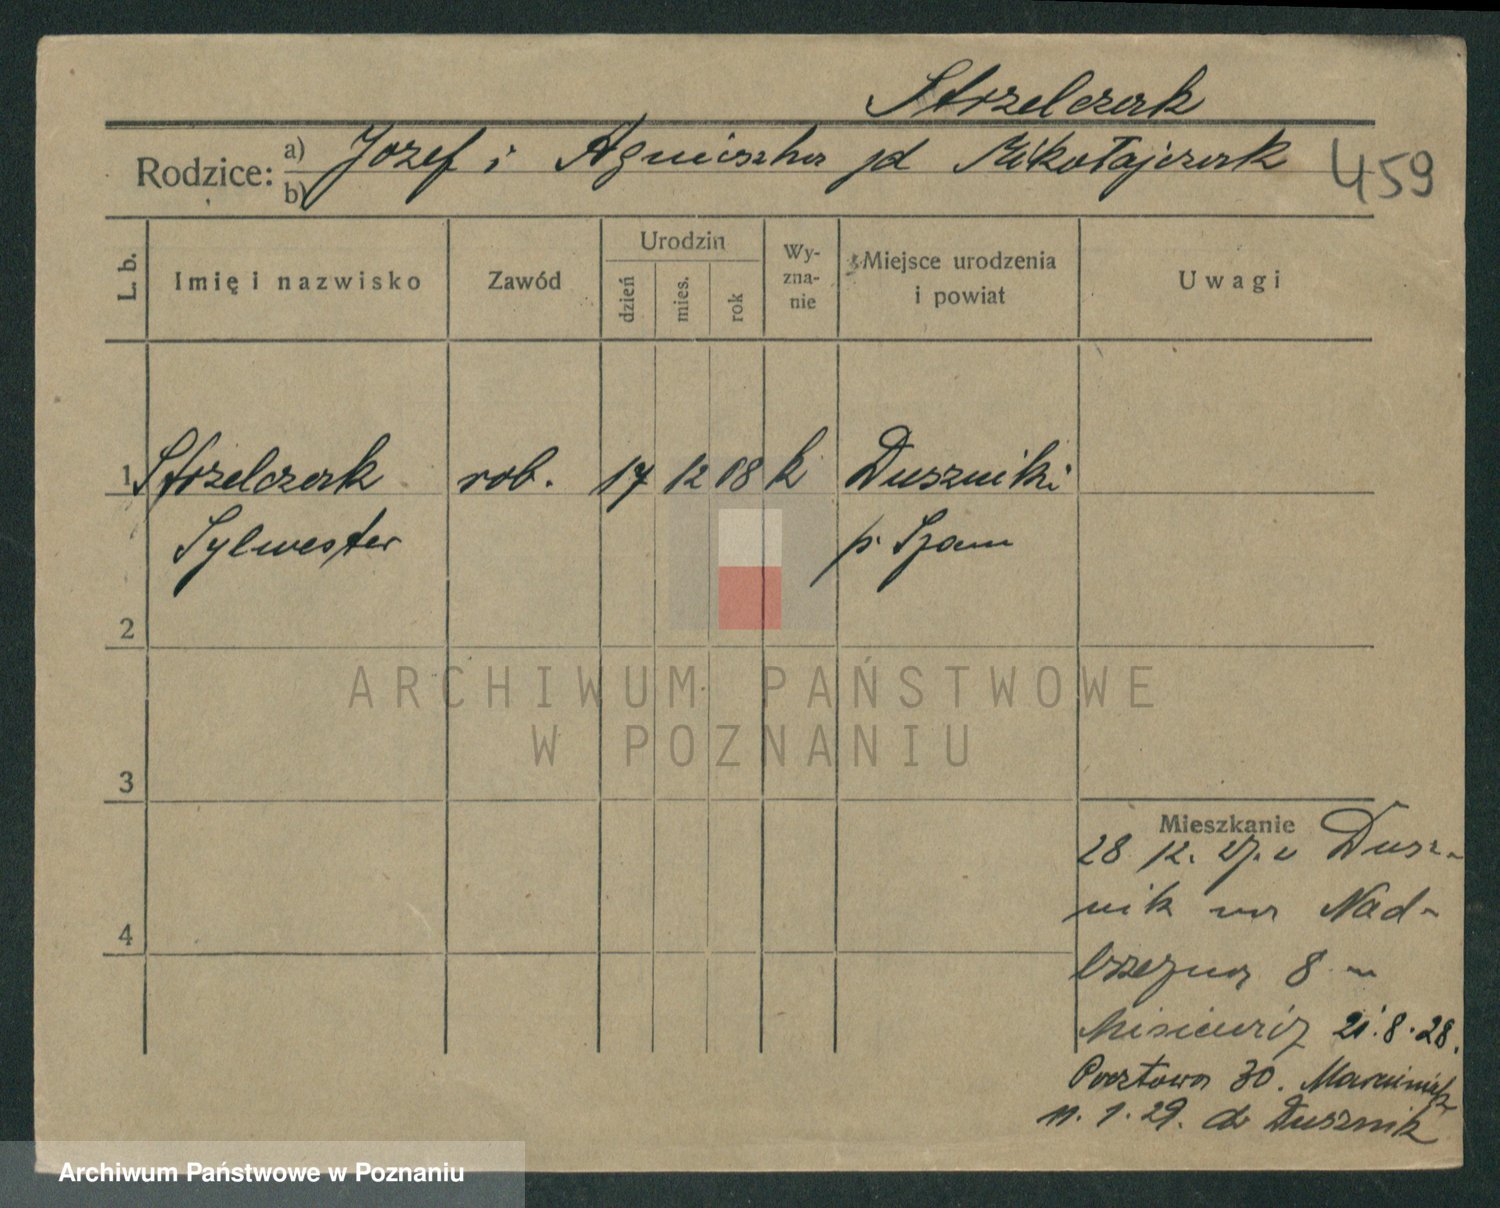 Strzelczak
Rodzice: a) Józef i Agnieszka jd Mikołajczak 459
b)
L. b. Imię i nazwisko Zawód Urodzin dzień mies. rok Wy-zna-nie Miejsce urodzenia i powiat Uwagi
1 Strzelczak rob. 17 12 08 k Duszniki
Sylwester p. Szam
2
3
4
Mieszkanie
28 12. 27. z Dusz-
nik na Nad-
brzeżna 8 m
Misiewicz 21.8.28.
Pocztowa 30. Marciniak
11.1.29. do Dusznik
ARCHIWUM PAŃSTWOWE
W POZNANIU
Archiwum Państwowe w Poznaniu